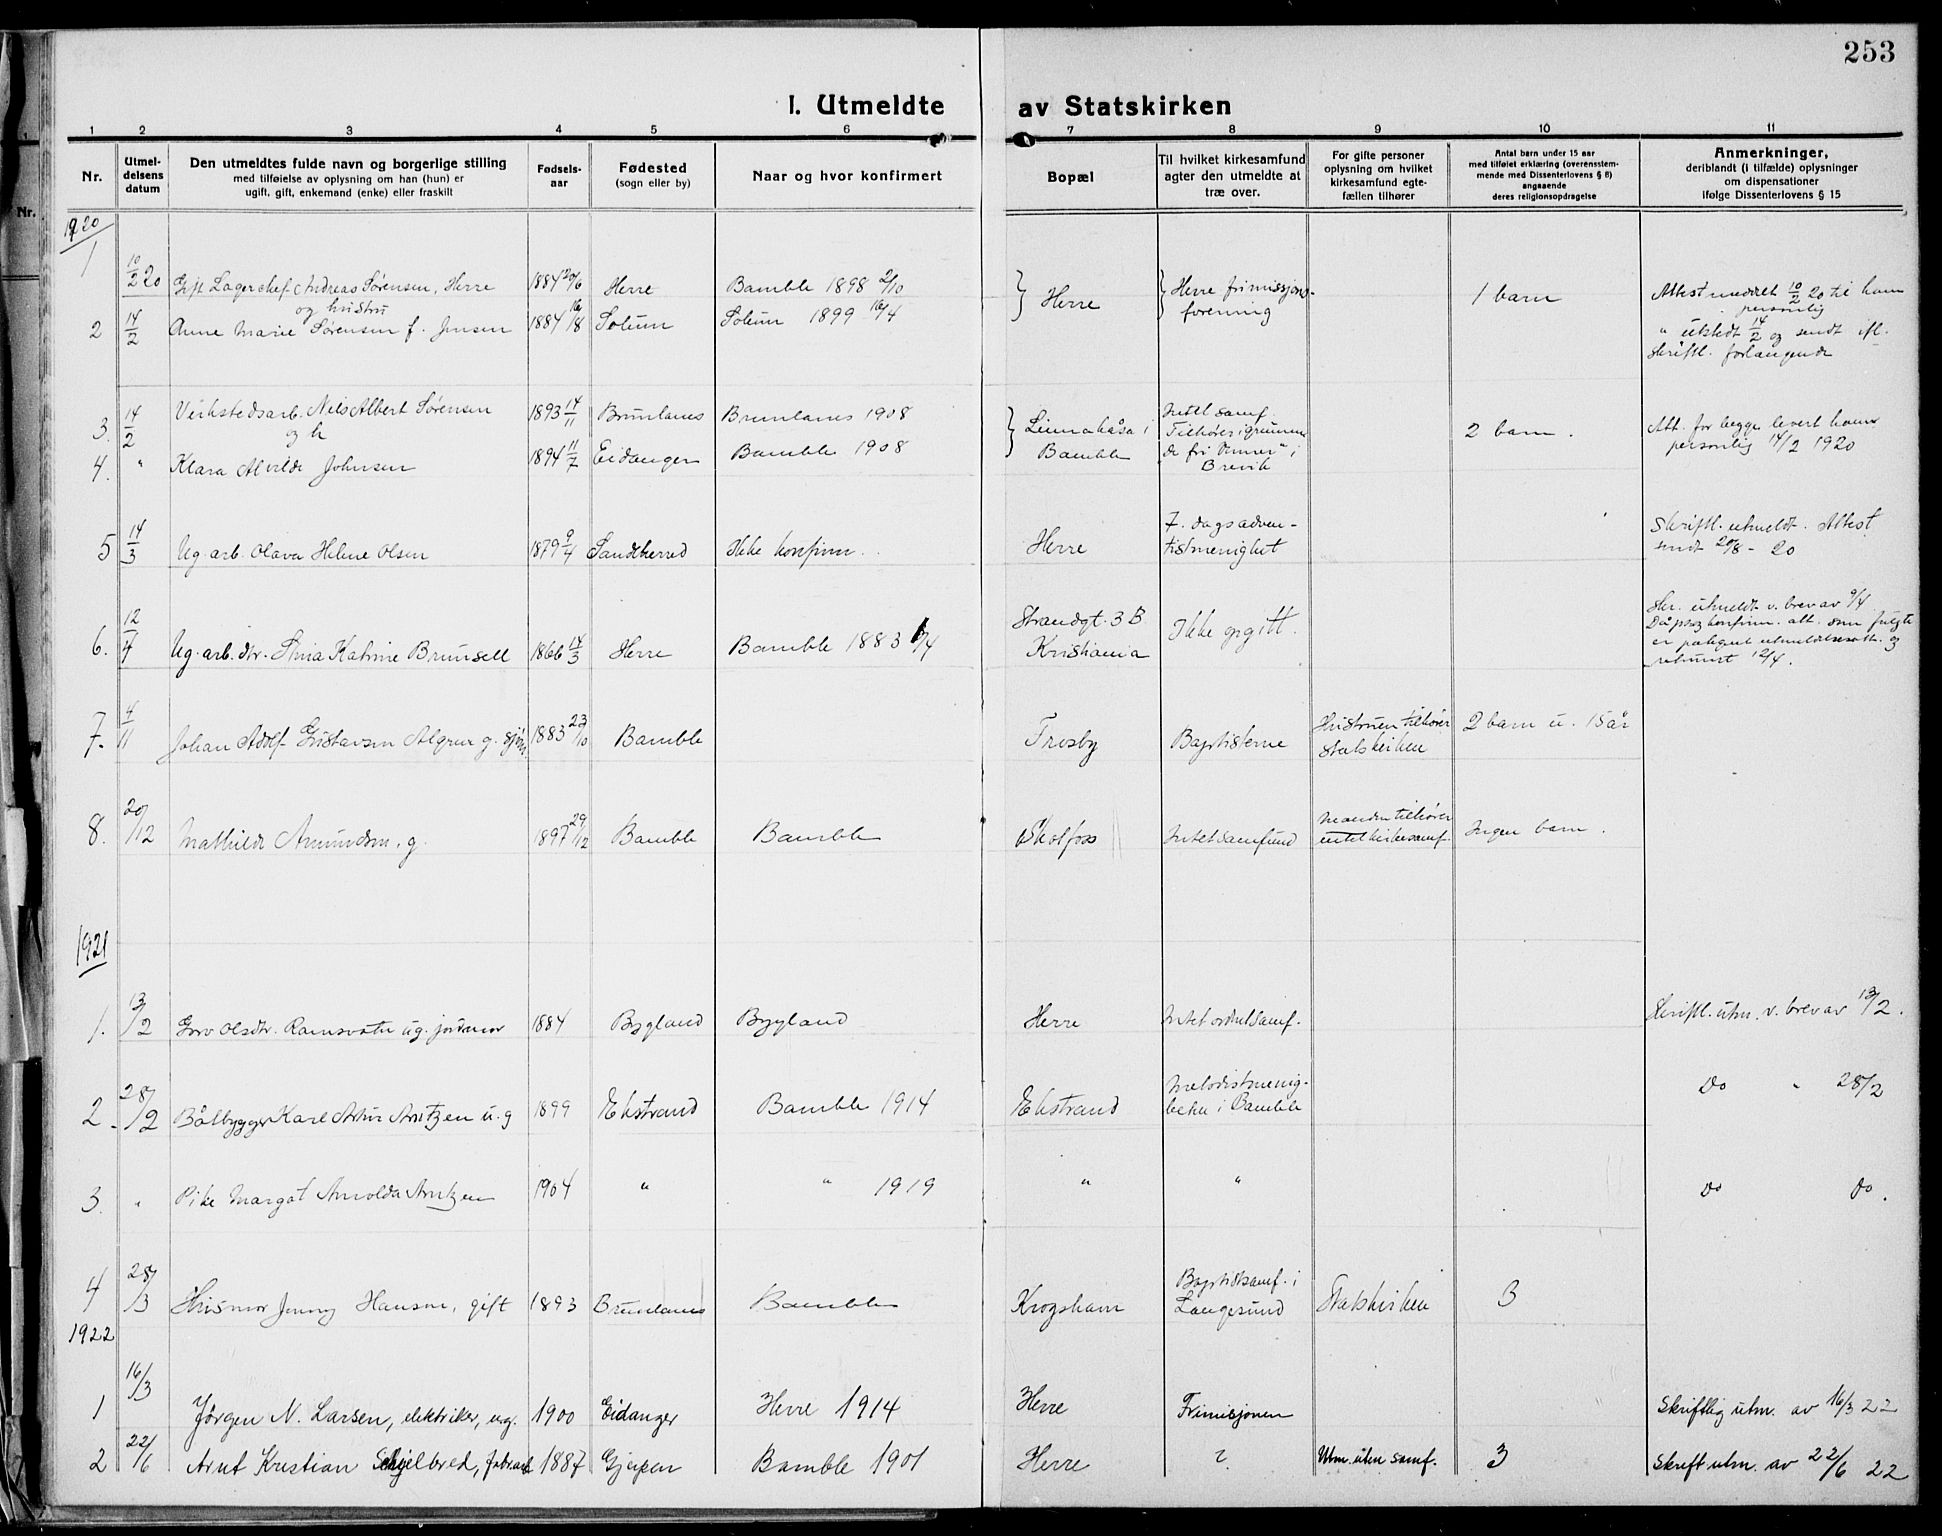 253
I. Utmeldte av Statskirken
1 2 3 4 5 6 7 8 9 10 11
Nr.
Utmel-
delsens
datum
Den utmeldtes fulde navn og borgerlige stilling
med tilføielse av oplysning om han (hun) er
ugift, gift, enkemand (enke) eller fraskilt
Fødsels-
aar
Fødested
(sogn eller by)
Naar og hvor konfirmert
Bopæl
Til hvilket kirkesamfund
agter den utmeldte at
træ over.
For gifte personer
oplysning om hvilket
kirkesamfund egte-
fællen tilhører
Antal barn under 15 aar
med tilføiet erklæring (overensstem-
mende med Dissenterlovens § 8)
angaaende
deres religionsopdragelse
Anmerkninger,
deriblandt (i tilfælde) oplysninger
om dispensationer
ifølge Dissenterlovens § 15
Nr.
1920
1 10/2 20 Gift Lagerchef Andreas Sørensen, Herre 1884 20/6 Herre Bamble 1898 2/10
og hustru
2 14/2 Anne Marie Sørensen f. Jensen 1884 16/8 Solum Solum 1899 16/4
Herre
Herre frimissjons-
forening
1 barn
Attest meddelt 10/2 20 til ham
personlig
" utstedt 14/2 og sendt ifl.
skriftl. forlangende
3. 14/2 Verkstedsarb. Nils Albert Sørensen 1893 14/11 Brunlanes Brunlanes 1908
og h
4. " Klara Alvilde Johnsen 1894 11/7 Eidanger Bamble 1908
i
Bamble
Intet samf.
Tilhører i grunnen
de fri venner" i
Brevik
2 barn.
Att. for begge levert ham
personlig 14/2 1920
5 14/3 Ug. arb. Olava Helene Olsen 1879 9/4 Sandeherred Ikke konfirm. Herre
7. dags adven-
tistmenighet
Skriftl. utmeldt. Attest
sendt 20/8 - 20
6. 12/4 Ug. arb. dtr. Stina Katrine Brunsell 1866 14/3 Herre Bamble 1883
Strandgt. 3 B
Kristiania
Ikke opgitt.
Skr. utmeldt v. brev av 9/4
Dåps og konfirm. att. som fulgte
er paategnet utmeldelsesatt. og
returnert 12/4.
7. 4/11 Johan Adolf Gustavsen Algrun g. sjøm. 1883 23/10 Bamble Trosby Baptisterne
Hustruen tilhører
statskirken
2 barn u. 15 år
8. 20/12 Mathilde Amundsen, g. 1897 29/12 Bamble Bamble Skotfoss Intet samfund
Manden tilhører
intet kirkesamf.
Ingen barn.
1921
1. 13/2 Gro Olsdtr. Ramsvatn ug. jordmor 1884 Bygland Bygland Herre Intet ordnet samf. Skriftl. utm. v. brev av 13/2.
2. 28/2 Båtbygger Karl Artur Arntzen u.g 1899 Ekstrand Bamble 1914 Ekstrand
Metodistmenig-
heten i Bamble
Do " 28/2
3. " Pike Margot Arnolda Arntzen 1904 " " 1919 " " Do do.
4 28/3 Husmor Jenny Hansen, gift 1893 Brunlanes Bamble Krogshavn
Baptistsamf. i
Langesund
Statskirken 3
1922
1 16/3 Jørgen N. Larsen, elektriker, ug. 1900 Eidanger Herre 1914 Herre Frimisjonen Skriftlig utm. av 16/3 22
2 22/6 Arnt Kristian Skjelbred, fabr.arb 1887 Gjerpen Bamble 1901 Herre ? Utm. uten samf. 3 Skrift utm. av 22/6 22